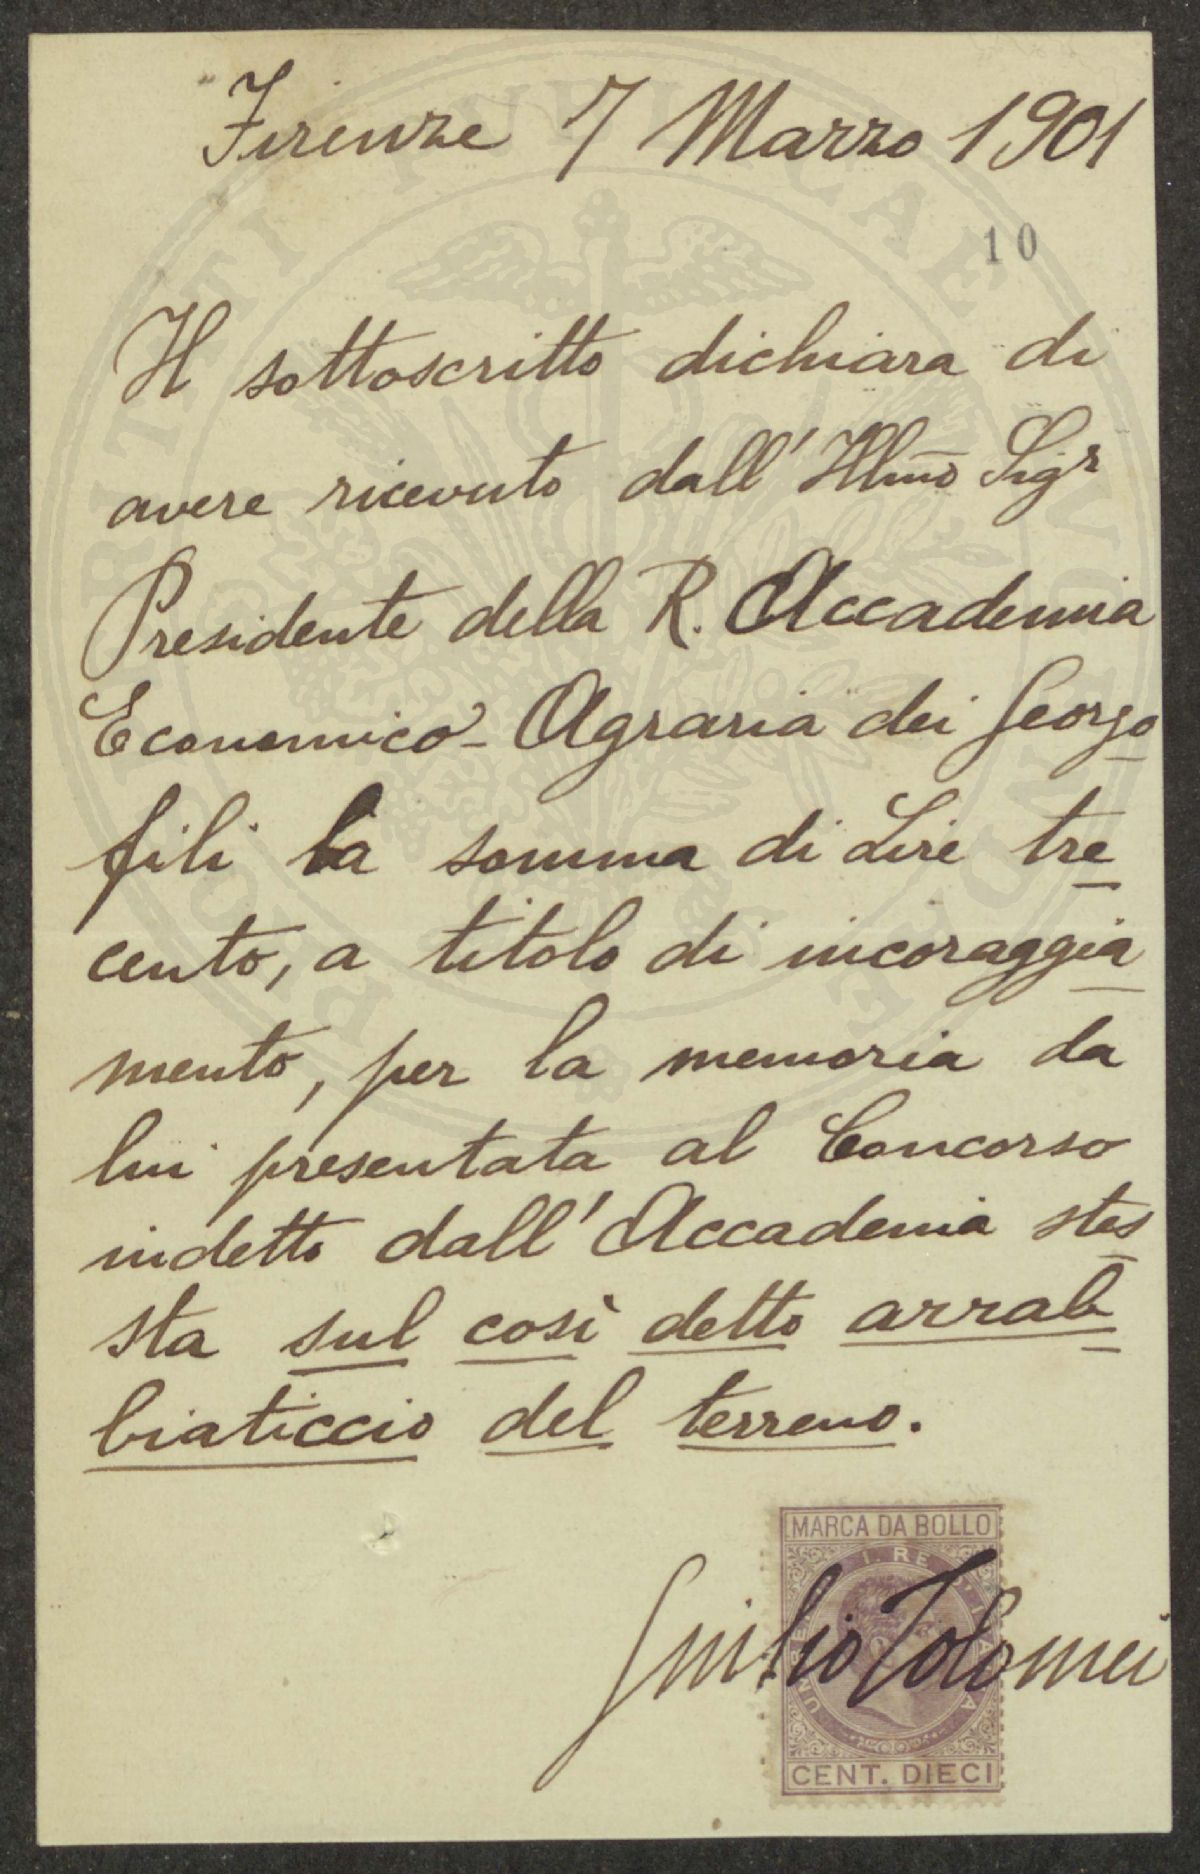 Firenze 7 Marzo 1901
10
Il sottoscritto dichiara di
avere ricevuto dall' Illmo Sigr
Presidente della R. Accademia
Economico-Agraria dei Georgo
fili la somma di Lire tre
cento, a titolo di incoraggia
mento, per la memoria da
lui presentata al Concorso
indetto dall' Accademia stes
sta sul così detto arrab
biaticcio del terreno.
MARCA DA BOLLO
Giulio Tolomei
CENT. DIECI